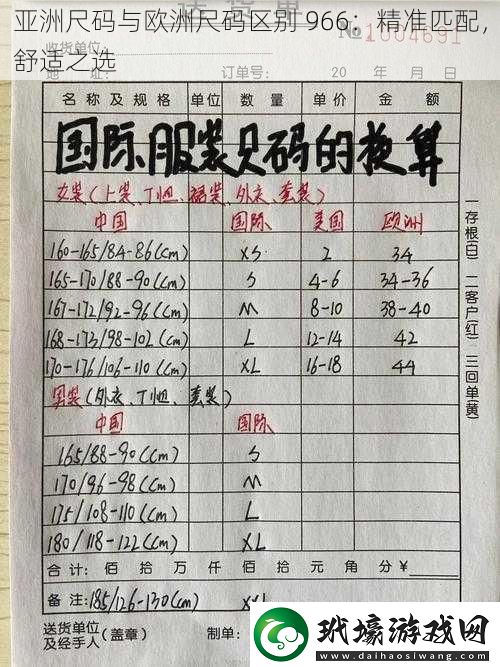 亚洲尺码与欧洲尺码区别 966：精准匹配，
舒适之选
送货单
№ 1004691
收货单位
订单号： 20 年 月 日
名称及规格 单位 数量 单价 金额
国际服装尺码的换算
女装(上装、T恤、裙装、外衣、套装)
中国 国际 美国 欧洲
160-165/84-86(cm) XS 2 34
165-170/88-90(cm) S 4-6 34-36
167-172/92-96(cm) M 8-10 38-40
168-173/98-102(cm) L 12-14 42
170-176/106-110(cm) XL 16-18 44
男装(外衣、T恤、套装)
中国 国际
165/88-90(cm) S
170/96-98(cm) M
175/108-110(cm) L
180/118-122(cm) XL
合计： 佰 拾 万 仟 佰 拾 元 角 分 ￥
备注： 185/126-130(cm) XXL
送货单位
及经手人(盖章) 制单：
一存根(白) 二客户(红) 三回单(黄)
玳壕游戏网
www.daihaosiwang.com